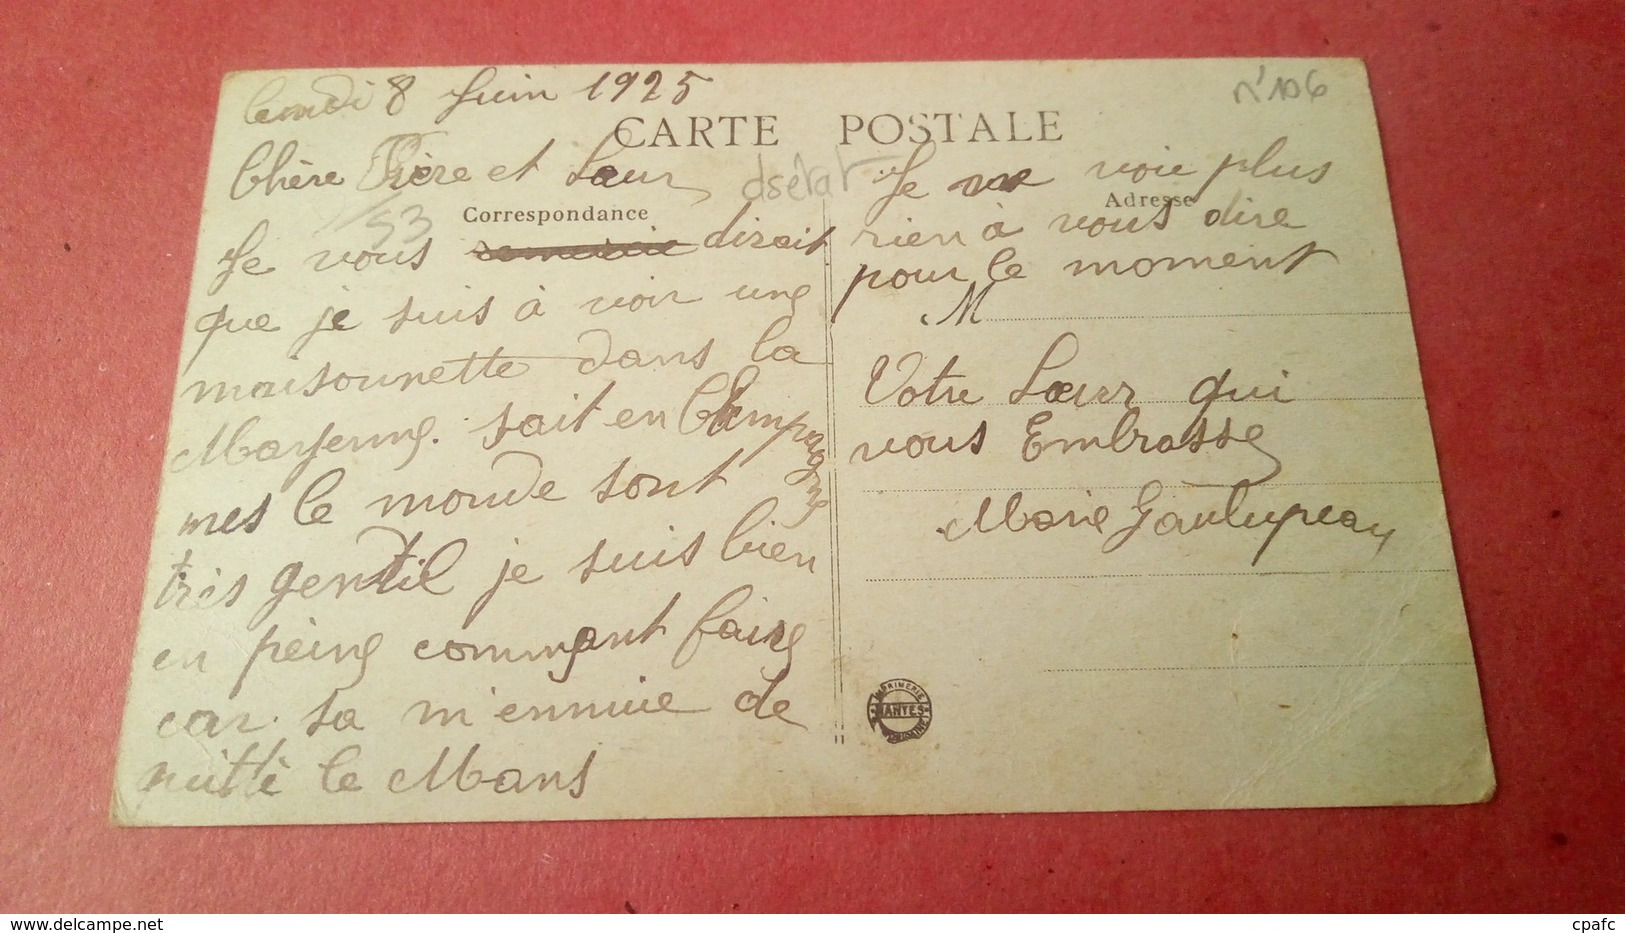 lundi 8 Juin 1925
n° 106
CARTE POSTALE
Chère Frère et Sœur
dsétat
53
Correspondance
Je vous remercie dirait
que je suis à voir une
maisounette dans la
Mayenne. sait en Champagne
mes le monde sont
très gentil je suis bien
en peine commant faire
car sa m'ennuie de
quitté le Mans
Je ne voie plus
Adresse
rien à vous dire
pour le moment
M
Votre Sœur qui
vous Embrasse
Marie Gautupeau
IMPRIMERIE
NANTES
cpafc